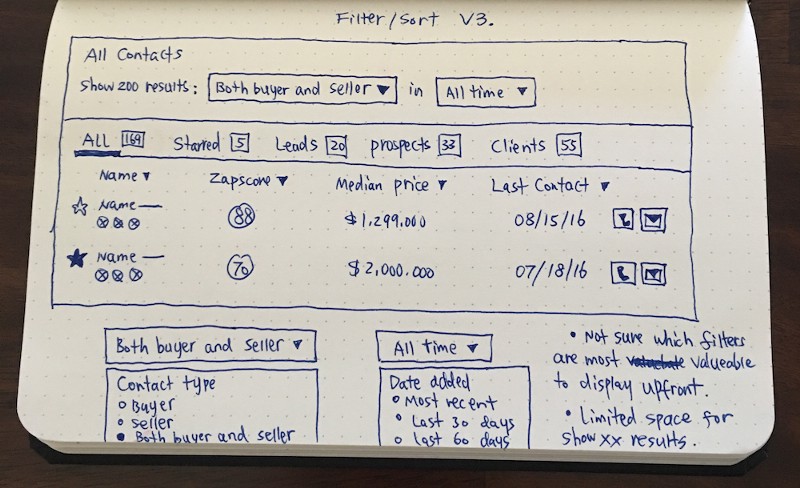 Filter/Sort V3.
All Contacts
Show 200 results: Both buyer and seller ▼ in All time ▼
All 169 Starred 5 Leads 20 prospects 33 Clients 55
Name ▼ Zapscore ▼ Median price ▼ Last Contact ▼
Name
88 $1,299.000 08/15/16
Name
70 $2,000.000 07/18/16
Both buyer and seller ▼
Contact type
Buyer
seller
Both buyer and seller
All time ▼
Date added
Most recent
Last 30 days
last 60 days
• Not sure which filters
are most valueable
to display upfront.
• Limited space for
show xx results.